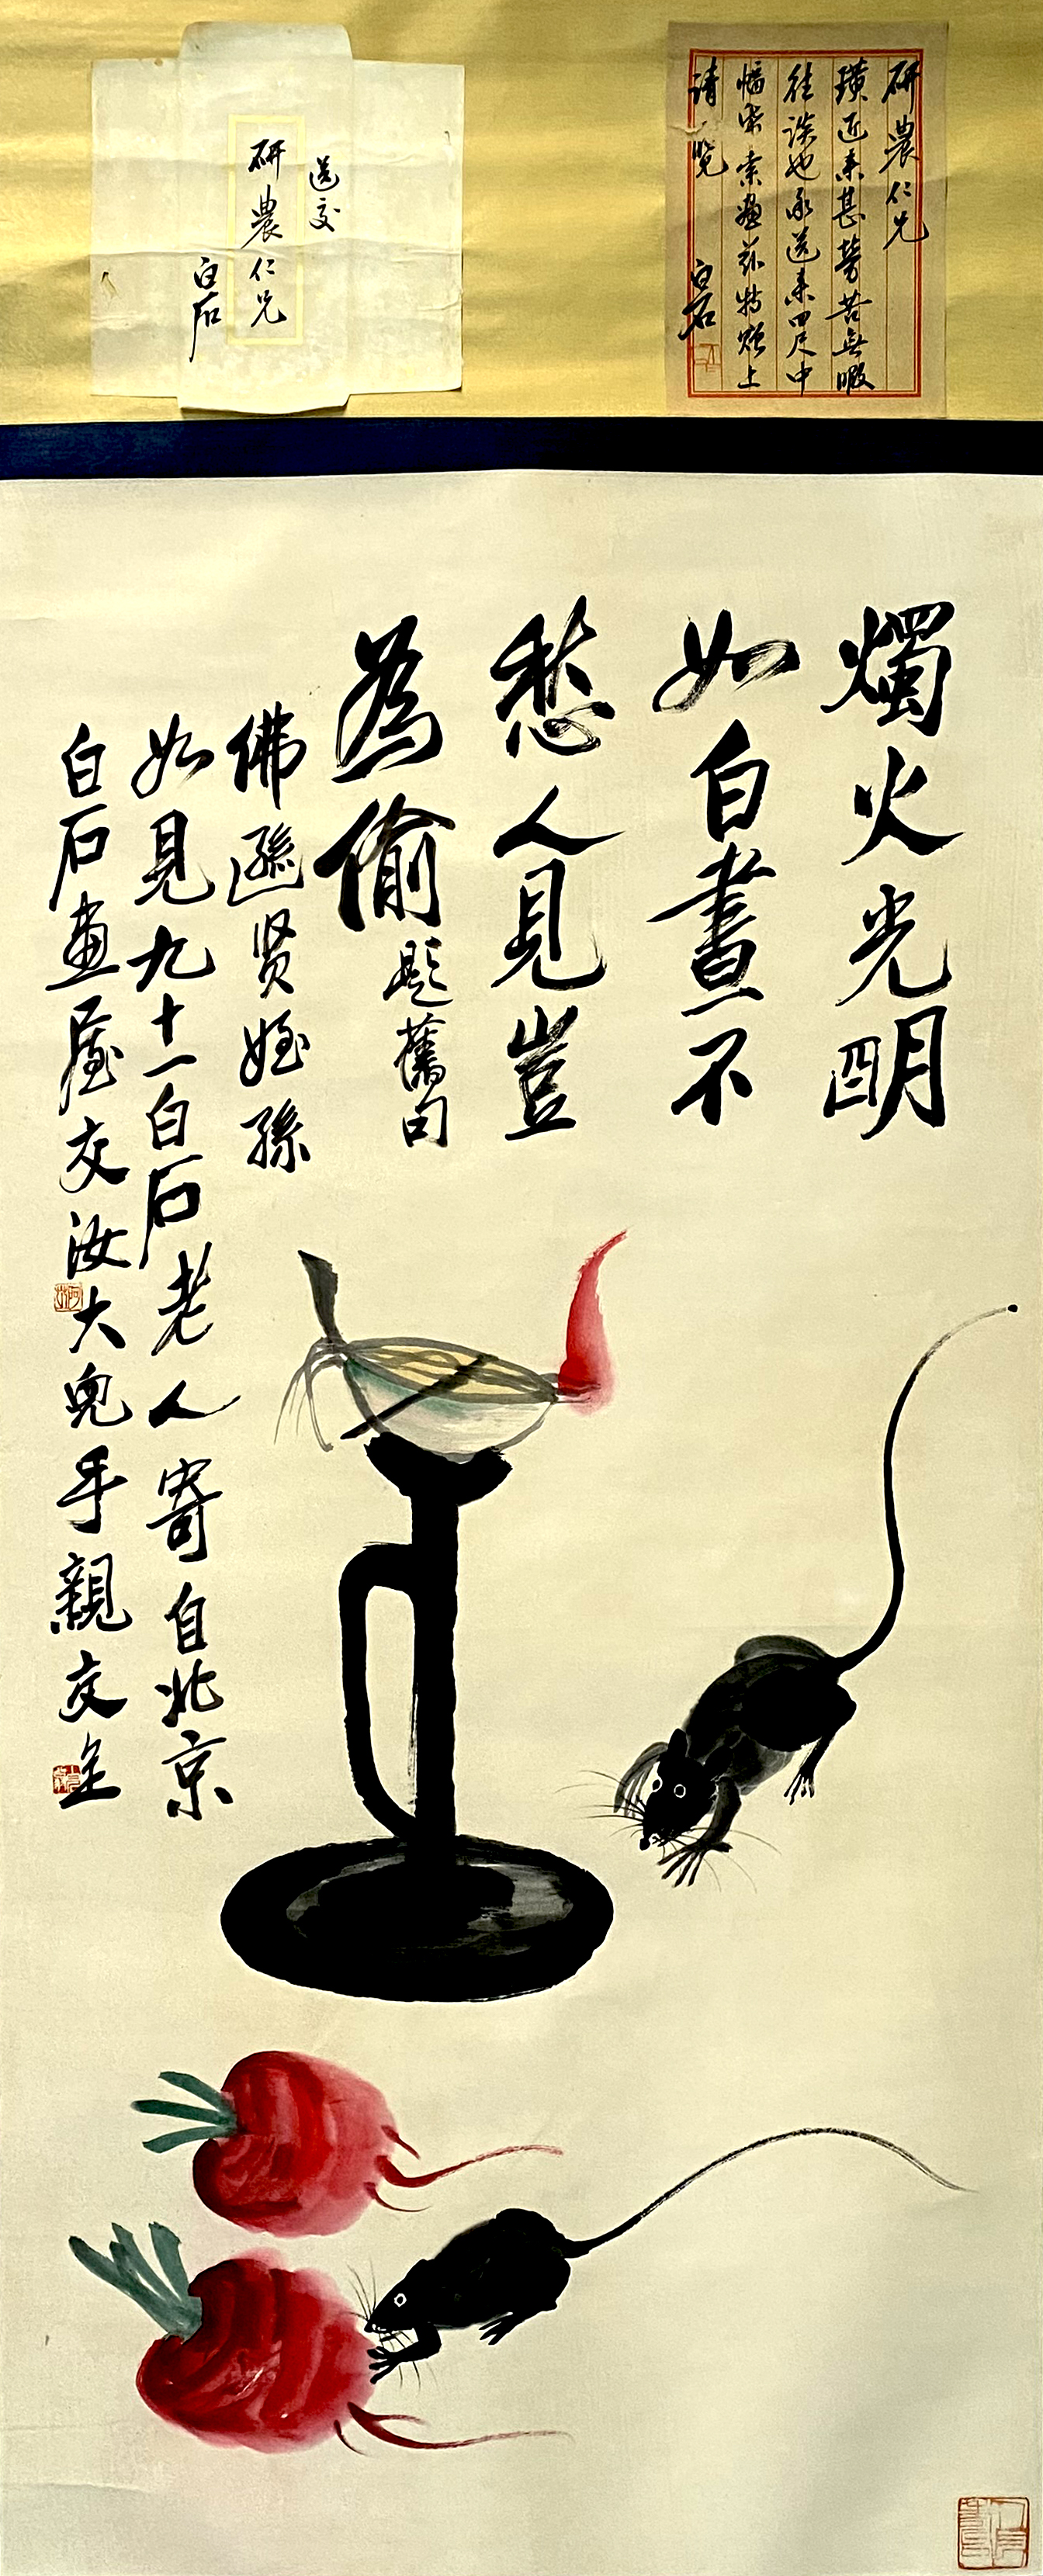 研農仁兄
璜近来甚勞苦無暇
往談也承送来四尺中
幅索畫茲特上
请覽
白石
送交
研農仁兄
白石
燭火光明
如白晝不
愁人見豈
為偷題舊句
佛遜贤姪孫
如見九十一白石老人寄自北京
白石畫屋交汝大兒手親交